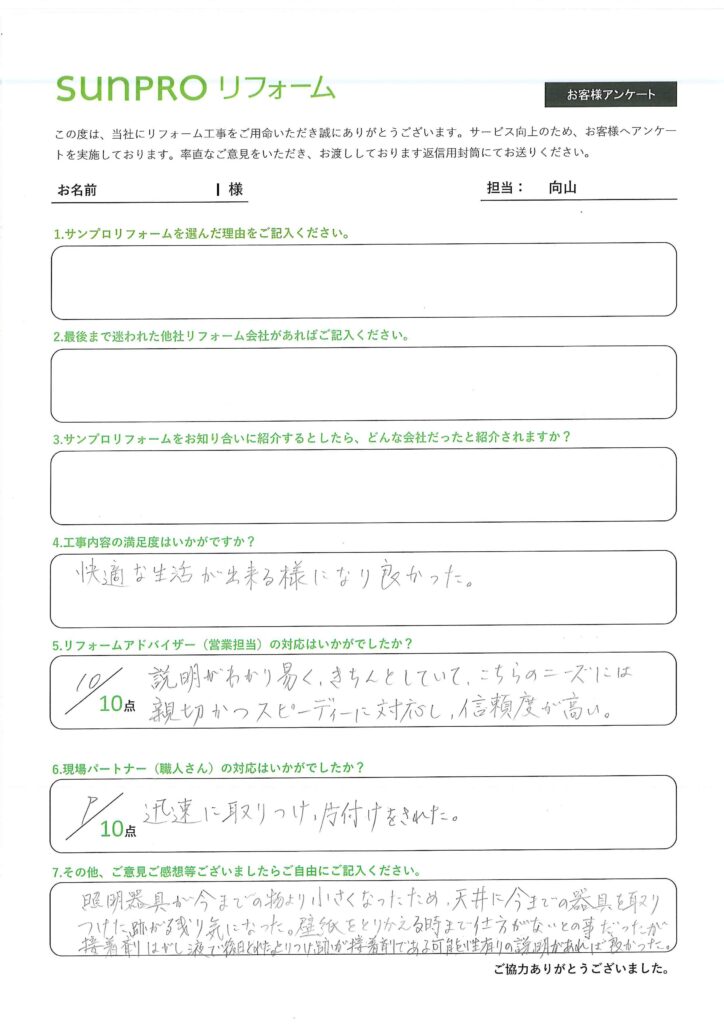 sunPRO リフォーム
お客様アンケート
この度は、当社にリフォーム工事をご用命いただき誠にありがとうございます。サービス向上のため、お客様へアンケー
トを実施しております。率直なご意見をいただき、お渡ししております返信用封筒にてお送りください。
お名前 I 様
担当： 向山
1.サンプロリフォームを選んだ理由をご記入ください。
2.最後まで迷われた他社リフォーム会社があればご記入ください。
3.サンプロリフォームをお知り合いに紹介するとしたら、どんな会社だったと紹介されますか？
4.工事内容の満足度はいかがですか？
快適な生活が出来る様になり良かった。
5.リフォームアドバイザー（営業担当）の対応はいかがでしたか？
10/10点
説明がわかり易く、きちんとしていて、こちらのニーズには
親切かつスピーディーに対応し、信頼度が高い。
6.現場パートナー（職人さん）の対応はいかがでしたか？
/10点
迅速に取りつけ、片付けをされた。
7.その他、ご意見ご感想等ございましたらご自由にご記入ください。
照明器具が今までの物より小さくなったため、天井に今までの器具を取り
つけた跡が残り気になった。壁紙をとりかえる時まで仕方がないとの事だったが
接着剤はがし液で とれたよりつけ跡が接着剤である可能性有りの説明があれば良かった。
ご協力ありがとうございました。